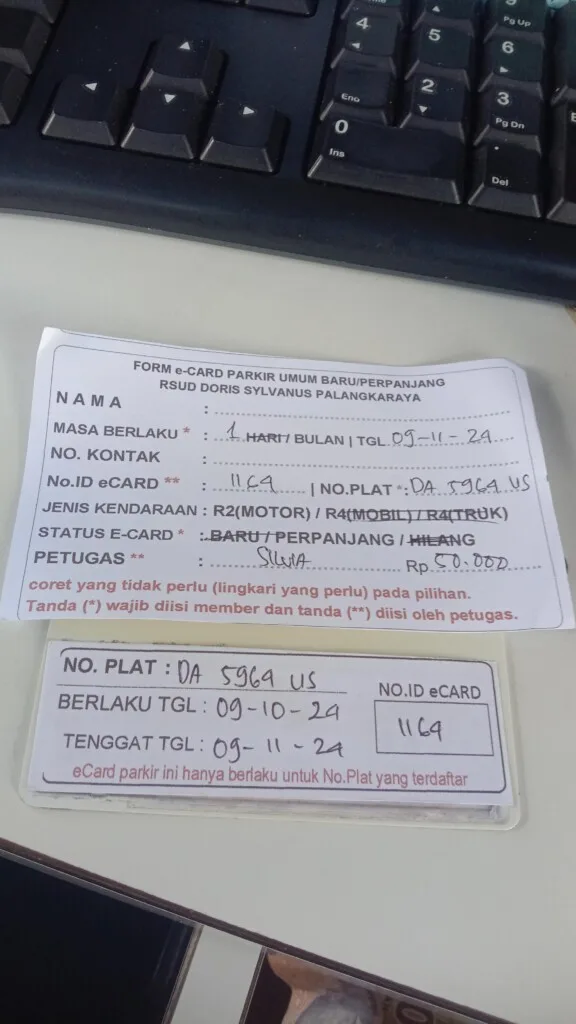 4
5
6
Pg Up
End
2
3
Pg Dn
0
Ins
.
Del
FORM e-CARD PARKIR UMUM BARU/PERPANJANG
RSUD DORIS SYLVANUS PALANGKARAYA
NAMA :
MASA BERLAKU * : 1 HARI / BULAN | TGL 09-11-24
NO. KONTAK :
No.ID eCARD ** : 1164 | NO.PLAT *: DA 5964 US
JENIS KENDARAAN : R2(MOTOR) / R4(MOBIL) / R4(TRUK)
STATUS E-CARD * : BARU / PERPANJANG / HILANG
PETUGAS ** : SILVIA Rp 50.000
coret yang tidak perlu (lingkari yang perlu) pada pilihan.
Tanda (*) wajib diisi member dan tanda (**) diisi oleh petugas.
NO. PLAT : DA 5964 US
NO.ID eCARD
BERLAKU TGL : 09-10-24
1164
TENGGAT TGL : 09-11-24
eCard parkir ini hanya berlaku untuk No.Plat yang terdaftar